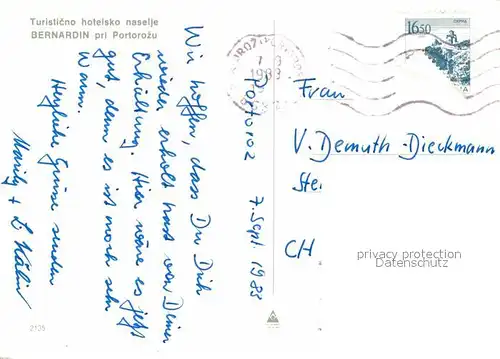 Turistično hotelsko naselje
BERNARDIN pri Portorožu
Wir hoffen, dass Du Dich
wieder erholt hast von Deiner
Erkältung. Hier wäre es jetzt
gut, denn es ist noch sehr
warm.
Herzliche Grüsse senden
Marily + L. Kälin
2105
Portoroz 7. Sept. 1983
7 9
1983
16.50
Frau
V. Demuth-Dieckmann
Stei
CH
privacy protection
Datenschutz